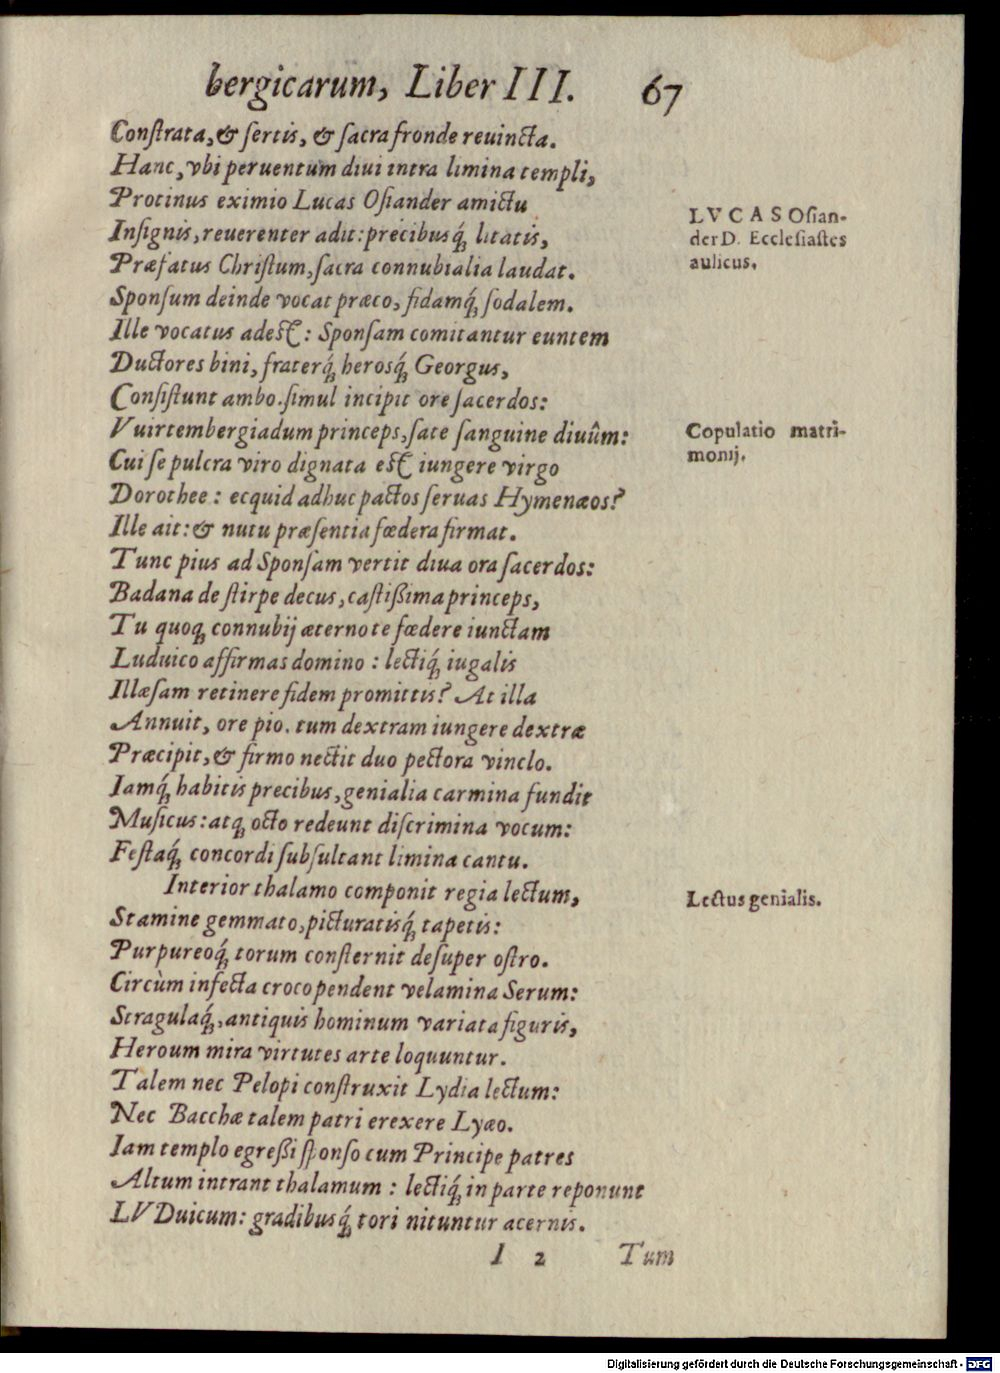 bergicarum, Liber III. 67
Conſtrata, & ſertis, & ſacra fronde reuincta.
Hanc, vbi peruentum diui intra limina templi,
Protinus eximio Lucas Oſiander amictu
LVCAS Oſian-
Inſignis, reuerenter adit: precibusq́; litatis,
der D. Eccleſiaſtes
Præfatus Chriſtum, ſacra connubialia laudat.
aulicus.
Sponſum deinde vocat præco, fidamq́; ſodalem.
Ille vocatus adest: Sponſam comitantur euntem
Ductores bini, fraterq́; herosq́; Georgus,
Conſiſtunt ambo. ſimul incipit ore ſacerdos:
Vuirtembergiadum princeps, ſate ſanguine diuûm:
Copulatio matri-
monij.
Cui ſe pulcra viro dignata est iungere virgo
Dorothee: ecquid adhuc pactos ſeruas Hymenæos?
Ille ait: & nutu præſentia fœdera firmat.
Tunc pius ad Sponſam vertit diua ora ſacerdos:
Badana de ſtirpe decus, caſtißima princeps,
Tu quoq; connubij æterno te fœdere iunctam
Luduico affirmas domino: lectiq́; iugalis
Illæſam retinere fidem promittis? At illa
Annuit, ore pio. tum dextram iungere dextræ
Præcipit, & firmo nectit duo pectora vinclo.
Iamq́; habitis precibus, genialia carmina fundit
Muſicus: atq; octo redeunt diſcrimina vocum:
Feſtaq́; concordi ſubſultant limina cantu.
Interior thalamo componit regia lectum,
Lectus genialis.
Stamine gemmato, picturatisq́; tapetis:
Purpureoq́; torum conſternit deſuper oſtro.
Circùm infecta croco pendent velamina Serum:
Stragulaq́;, antiquis hominum variata figuris,
Heroum mira virtutes arte loquuntur.
Talem nec Pelopi conſtruxit Lydia lectum:
Nec Bacchæ talem patri erexere Lyæo.
Iam templo egreßi ſponſo cum Principe patres
Altum intrant thalamum: lectiq́; in parte reponunt
LVDuicum: gradibusq́; tori nituntur acernis.
I 2 Tum
Digitalisierung gefördert durch die Deutsche Forschungsgemeinschaft - DFG